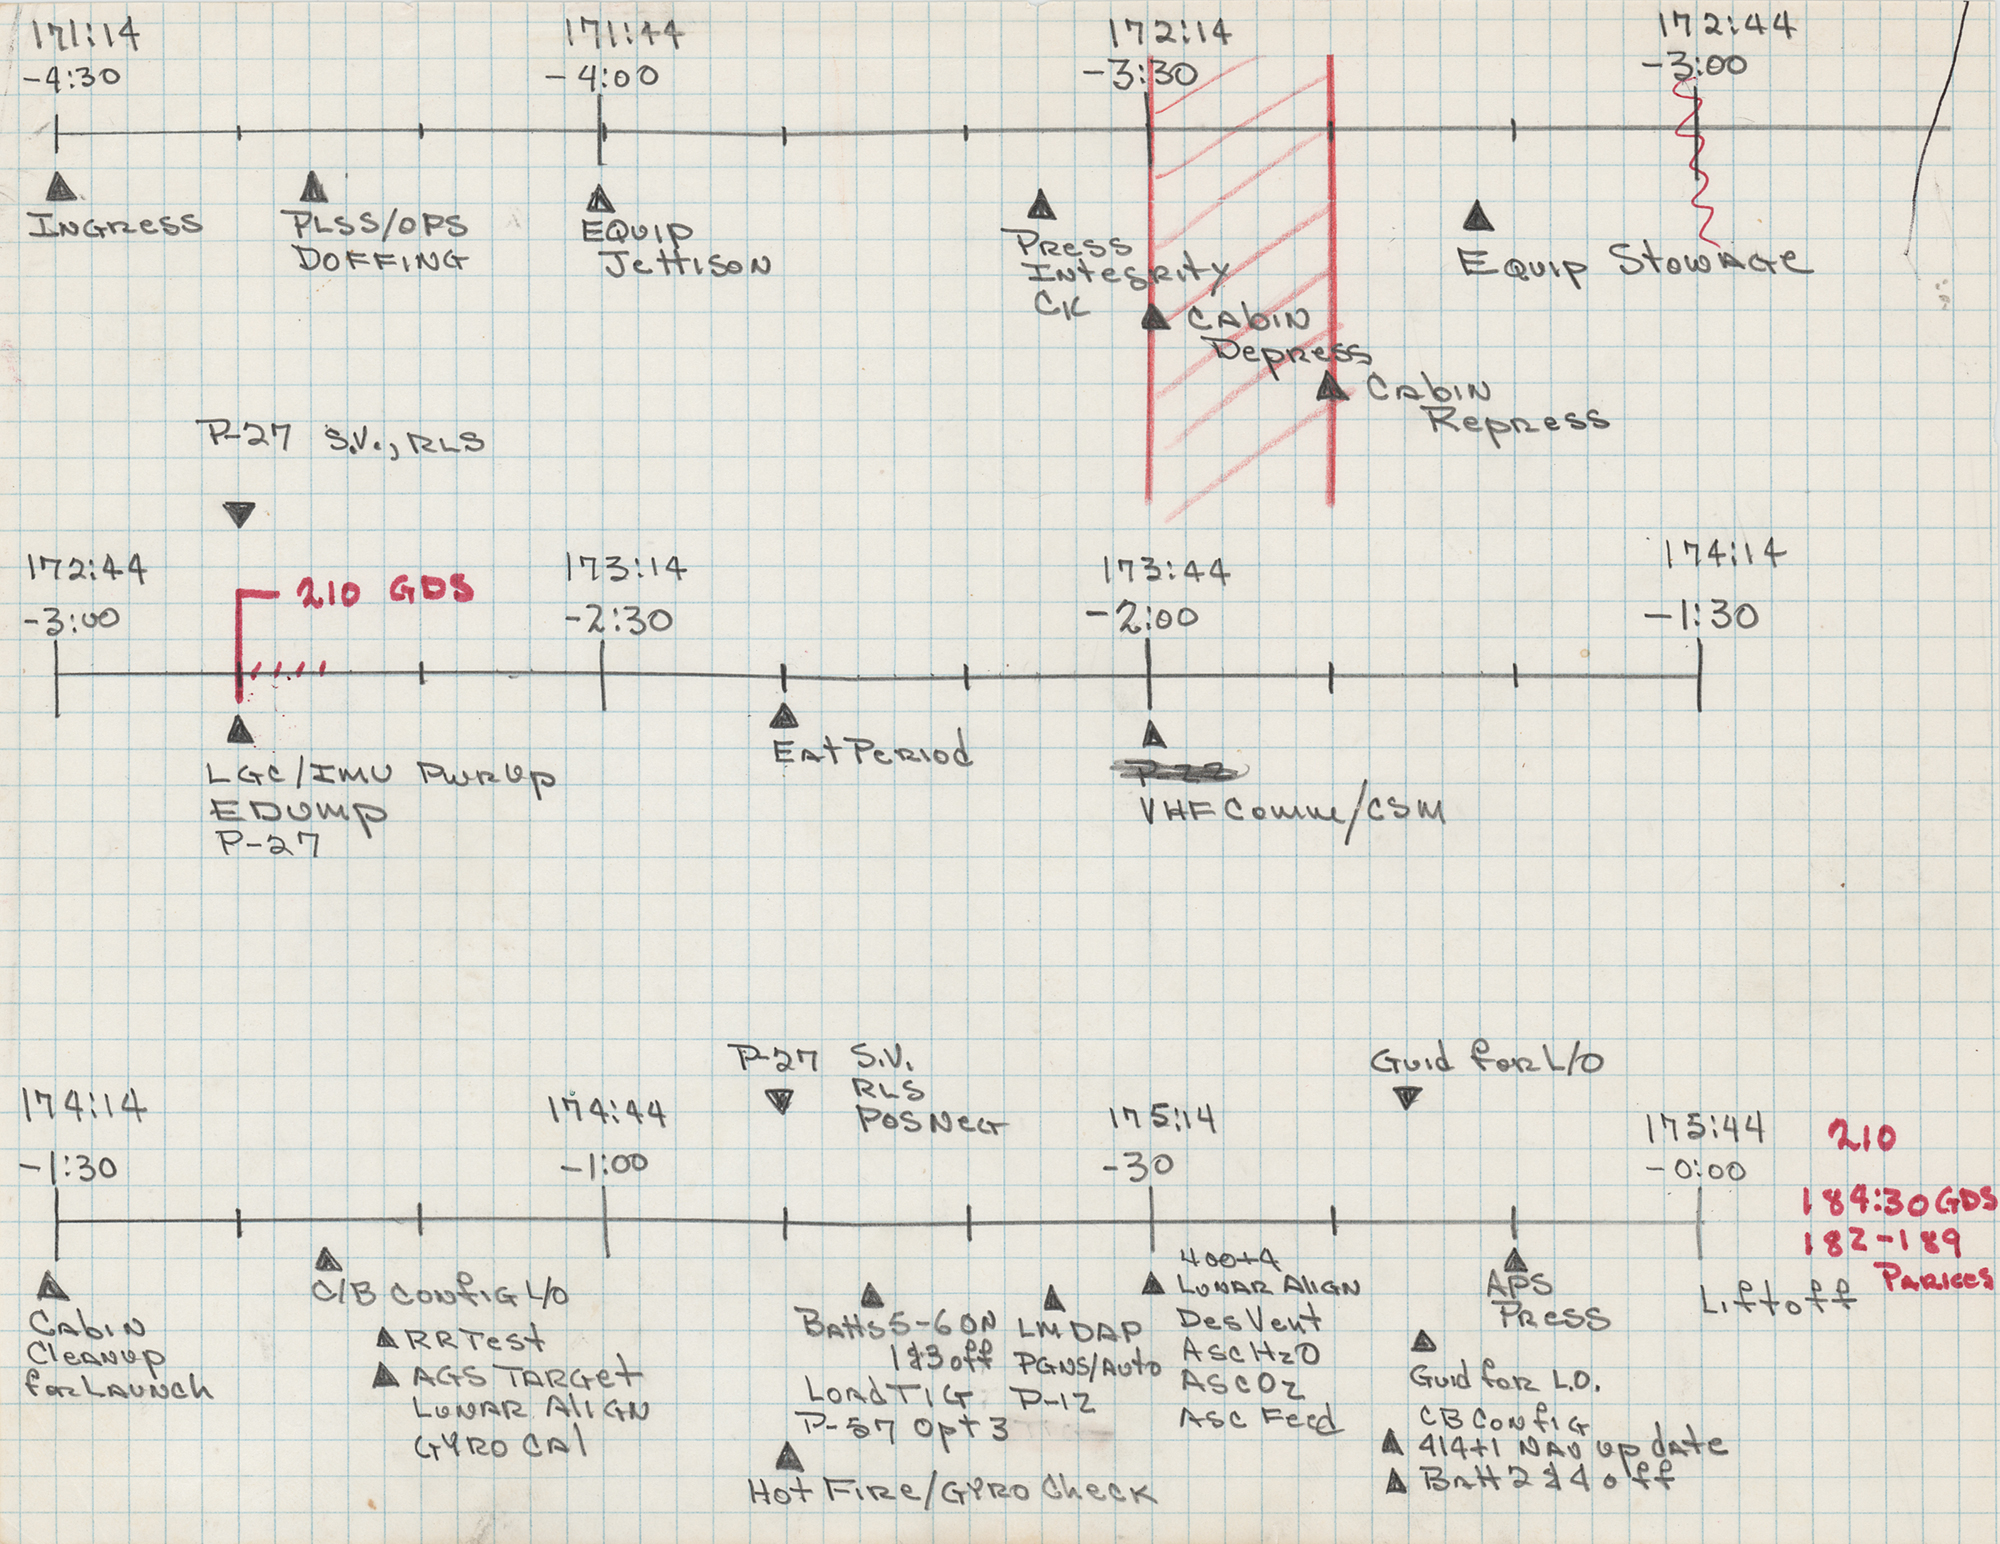 171:14
-4:30
171:44
-4:00
172:14
-3:30
172:44
-3:00
INGRESS
PLSS/OPS
DOFFING
EQUIP
JETTISON
PRESS
INTEGRITY
CK
CABIN
DEPRESS
CABIN
REPRESS
EQUIP STOWAGE
P-27 S.V., RLS
172:44
-3:00
210 GDS
173:14
-2:30
173:44
-2:00
174:14
-1:30
LGC/IMU PWR UP
E DUMP
P-27
EAT PERIOD
P-22
VHF Comm/CSM
174:14
-1:30
174:44
-1:00
P-27 S.V.
RLS
POS NEG
175:14
-30
Guid for L/O
175:44
-0:00
210
184:30 GDS
182-189
PARKES
CABIN
CLEANUP
for LAUNCH
C/B CONFIG L/O
RR TEST
AGS TARGET
LUNAR ALIGN
GYRO CAL
BATTS 5-6 ON
1&3 off
LOAD TIG
P-57 Opt 3
HOT FIRE/GYRO CHECK
LM DAP
PGNS/AUTO
P-12
400+4
LUNAR ALIGN
DES VENT
ASC H2O
ASC O2
ASC FEED
APS
PRESS
Guid for L.O.
CB CONFIG
414+1 NAV UPDATE
BATT 2 & 4 off
Liftoff